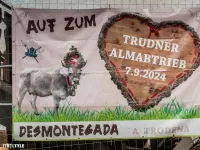 AUF ZUM
TRUDNER
ALMABTRIEB
7.9.2024
DESMONTEGADA A TRODENA